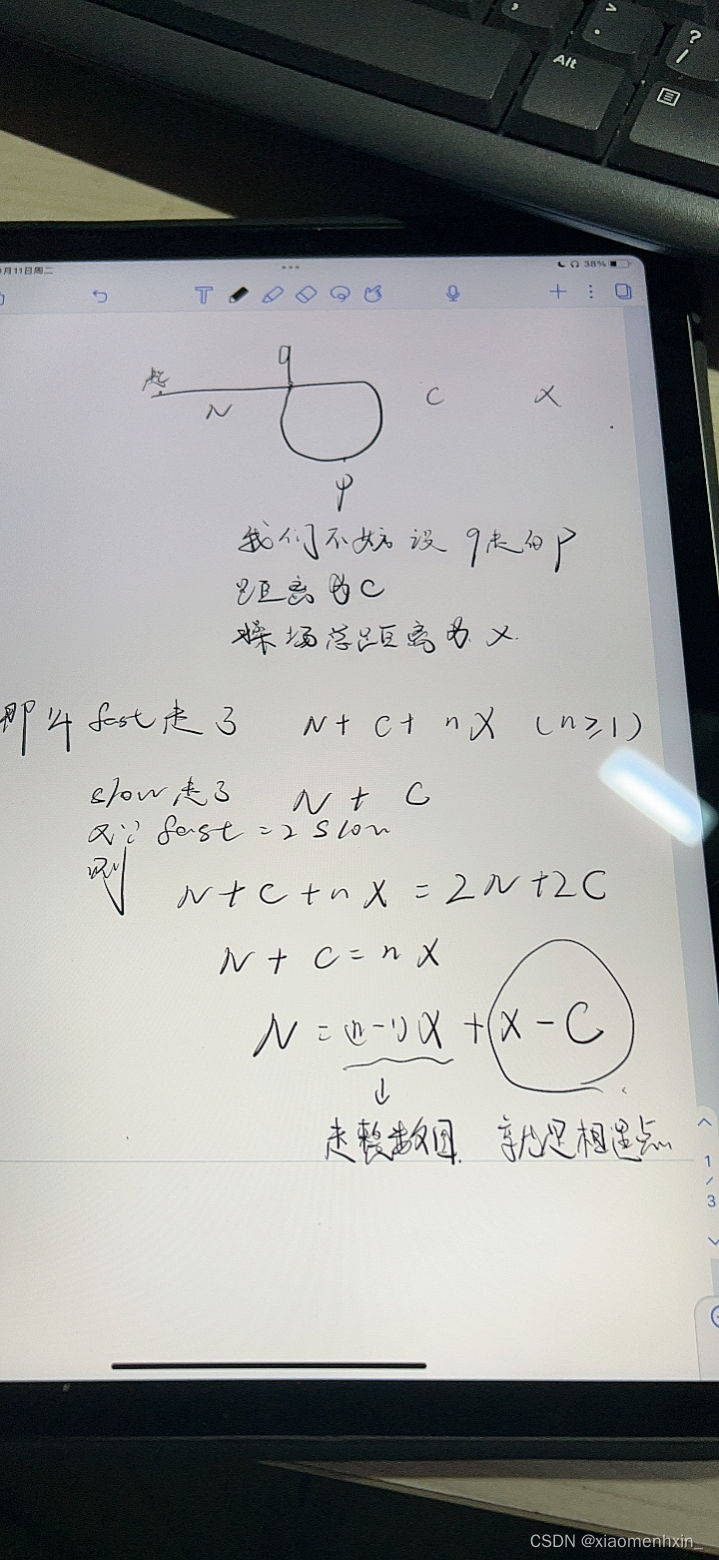 Alt
?
/
月11日周二
38%
起
q
N
C
X
P
我们不妨设 q走的P
距离为C
操场总距离为X.
即4 fast走了 N+C+nX (n≥1)
slow走了 N+C
又∵fast=2slow
则
N+C+nX=2N+2C
N+C=nX
N=(n-1)X+X-C
↓
走整数圈. 就是相遇点
1
/
3
CSDN @xiaomenhxin_